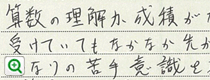 算数の理解力、成績が
受けていてもなかなか先が
なりの苦手意識を